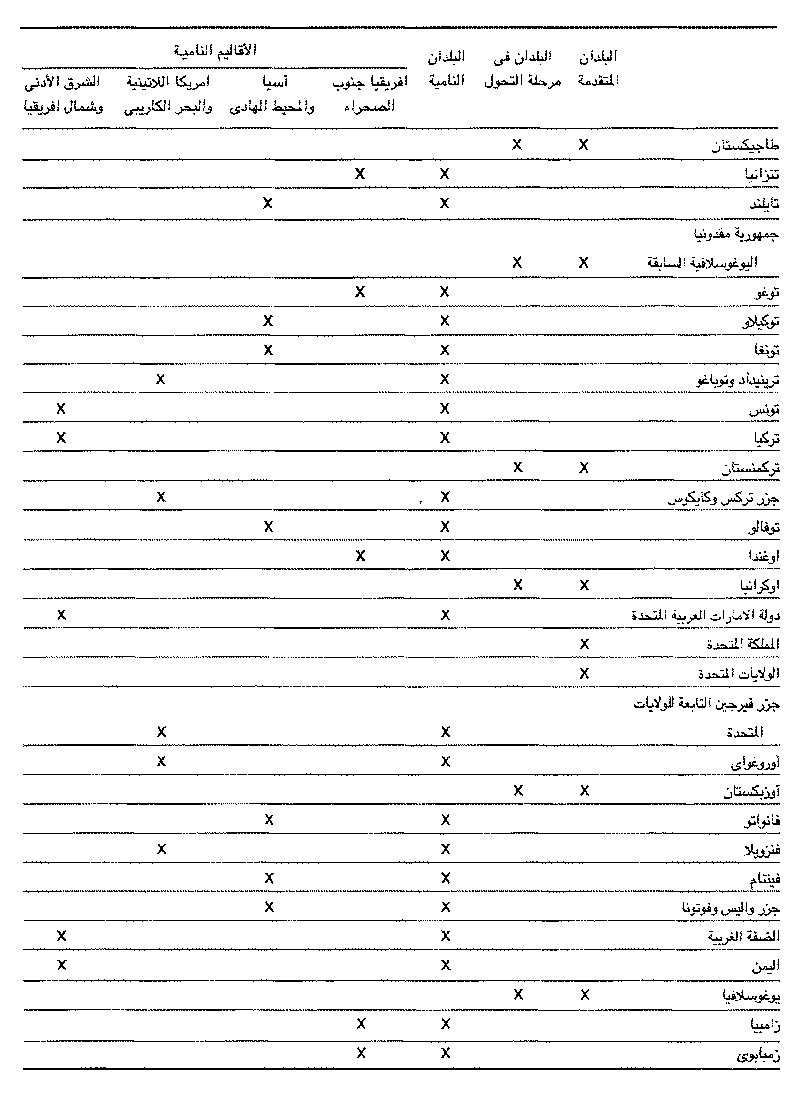 الأقاليم النامية
البلدان المتقدمة البلدان فى مرحلة التحول البلدان النامية افريقيا جنوب الصحراء آسيا والمحيط الهادى امريكا اللاتينية والبحر الكاريبى الشرق الأدنى وشمال افريقيا
طاجيكستان X X
تنزانيا X X
تايلند X X
جمهورية مقدونيا
اليوغوسلافية السابقة X X
توغو X X
توكيلاو X X
تونغا X X
ترينيداد وتوباغو X X
تونس X X
تركيا X X
تركمنستان X X
جزر تركس وكايكوس X X
توفالو X X
اوغندا X X
اوكرانيا X X
دولة الامارات العربية المتحدة X X
المملكة المتحدة X
الولايات المتحدة X
جزر فيرجين التابعة للولايات
المتحدة X X
أوروغواى X X
أوزبكستان X X
فانواتو X X
فنزويلا X X
فيتنام X X
جزر واليس وفوتونا X X
الضفة الغربية X X
اليمن X X
يوغوسلافيا X X
زامبيا X X
زمبابوى X X